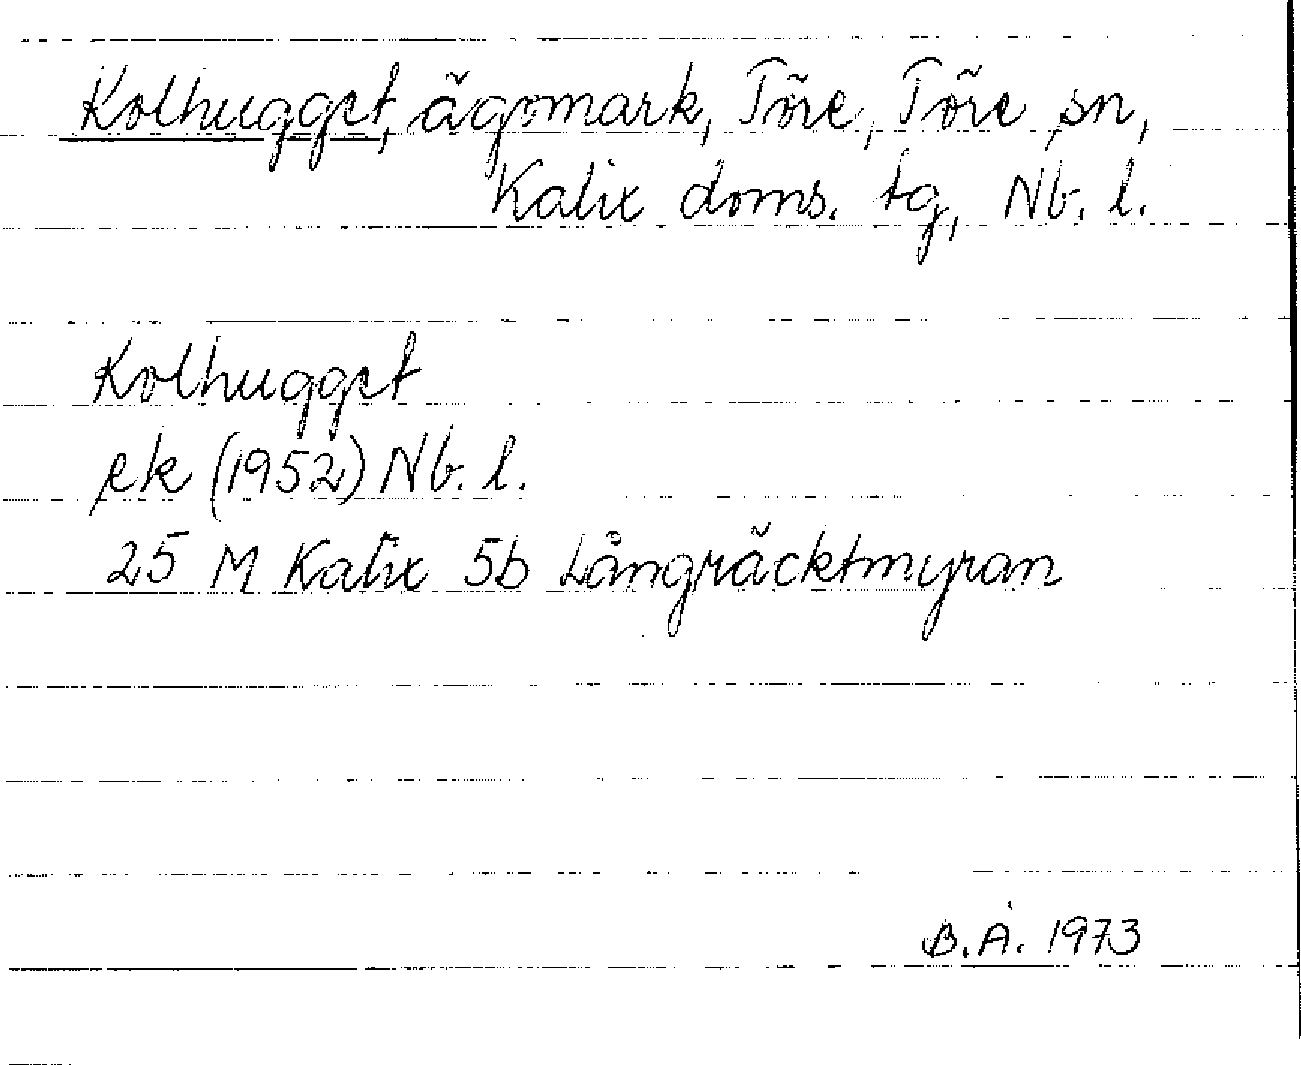 Kolhugget, ägomark, Töre, Töre sn,
Kalix doms. tg, Nb. l.
Kolhugget
ek (1952) Nb. l.
25 M Kalix 5b Långräcktmyran
B.Å. 1973